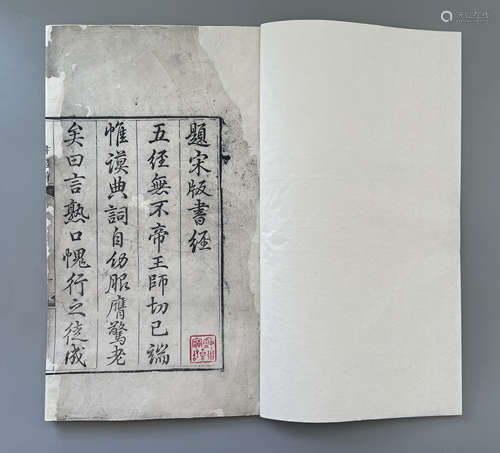 題宋版書經
五經無不帝王師切已端
惟謨典詞自幼服膺驚老
矣曰言熟口愧行之徒成